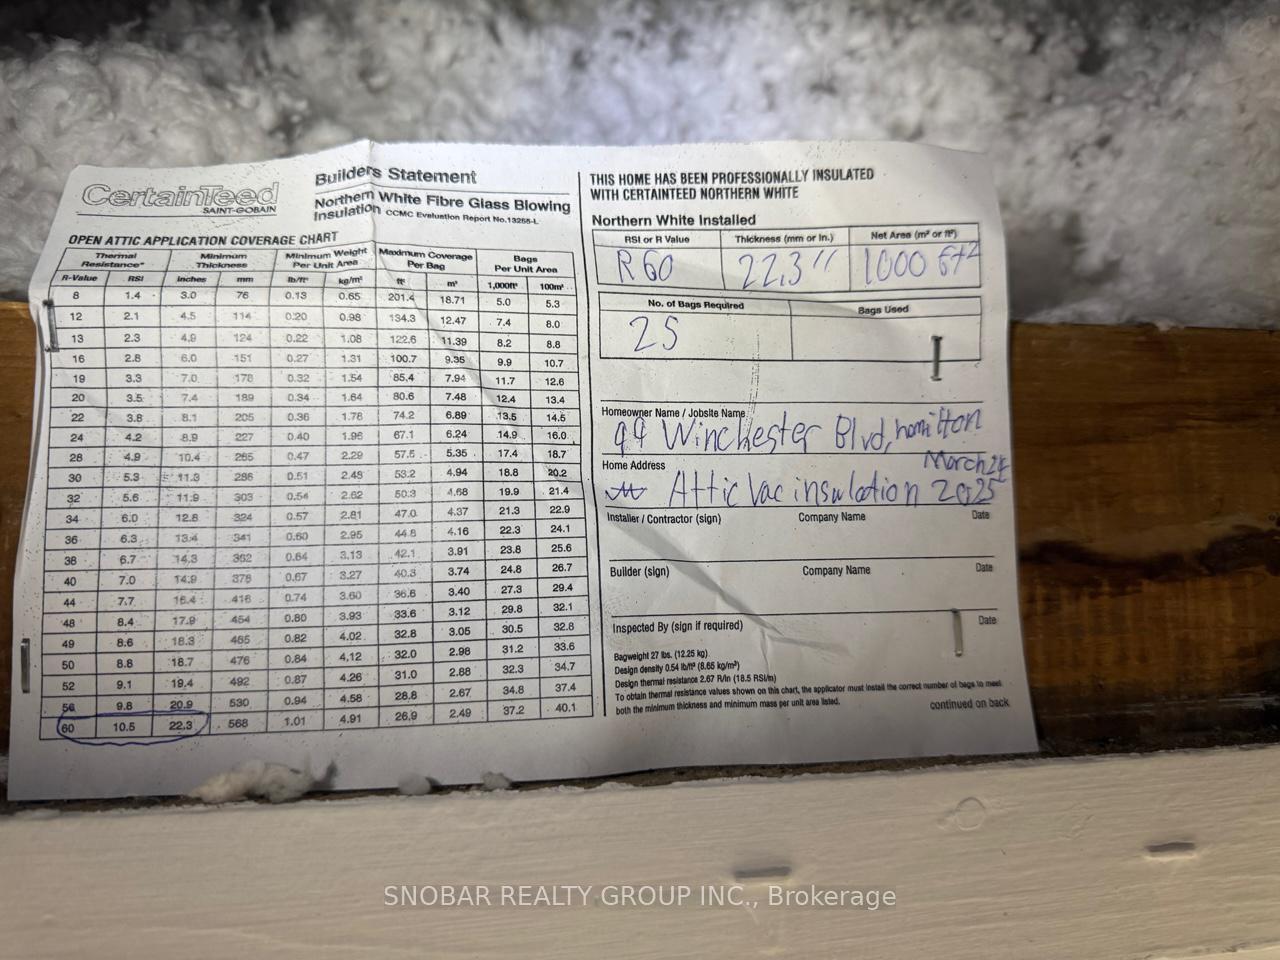 CertainTeed
SAINT-GOBAIN
Builders Statement
Northern White Fibre Glass Blowing
Insulation CCMC Evaluation Report No.13266-L
OPEN ATTIC APPLICATION COVERAGE CHART
Thermal Resistance* Minimum Thickness Minimum Weight Per Unit Area Maximum Coverage Per Bag Bags Per Unit Area
R-Value RSI inches mm lb/ft² kg/m² ft² m² 1,000ft² 100m²
8 1.4 3.0 76 0.13 0.65 201.4 18.71 5.0 5.3
12 2.1 4.5 114 0.20 0.98 134.3 12.47 7.4 8.0
13 2.3 4.9 124 0.22 1.08 122.6 11.39 8.2 8.8
16 2.8 6.0 151 0.27 1.31 100.7 9.35 9.9 10.7
19 3.3 7.0 178 0.32 1.54 85.4 7.94 11.7 12.6
20 3.5 7.4 189 0.34 1.64 80.6 7.48 12.4 13.4
22 3.8 8.1 205 0.36 1.78 74.2 6.89 13.5 14.5
24 4.2 8.9 227 0.40 1.96 67.1 6.24 14.9 16.0
28 4.9 10.4 265 0.47 2.29 57.5 5.35 17.4 18.7
30 5.3 11.3 286 0.51 2.48 53.2 4.94 18.8 20.2
32 5.6 11.9 303 0.54 2.62 50.3 4.68 19.9 21.4
34 6.0 12.8 324 0.57 2.81 47.0 4.37 21.3 22.9
36 6.3 13.4 341 0.60 2.95 44.8 4.16 22.3 24.1
38 6.7 14.3 362 0.64 3.13 42.1 3.91 23.8 25.6
40 7.0 14.9 378 0.67 3.27 40.3 3.74 24.8 26.7
44 7.7 16.4 416 0.74 3.60 36.6 3.40 27.3 29.4
48 8.4 17.9 454 0.80 3.93 33.6 3.12 29.8 32.1
49 8.6 18.3 465 0.82 4.02 32.8 3.05 30.5 32.8
50 8.8 18.7 476 0.84 4.12 32.0 2.98 31.2 33.6
52 9.1 19.4 492 0.87 4.26 31.0 2.88 32.3 34.7
56 9.8 20.9 530 0.94 4.58 28.8 2.67 34.8 37.4
60 10.5 22.3 568 1.01 4.91 26.9 2.49 37.2 40.1
THIS HOME HAS BEEN PROFESSIONALLY INSULATED
WITH CERTAINTEED NORTHERN WHITE
Northern White Installed
RSI or R Value Thickness (mm or in.) Net Area (m² or ft²)
R60 22.3" 1000 ft²
No. of Bags Required Bags Used
25
Homeowner Name / Jobsite Name
99 Winchester Blvd, hamilton
Home Address
March 24
Attic Vac insulation 2025
Installer / Contractor (sign) Company Name Date
Builder (sign) Company Name Date
Inspected By (sign if required) Date
Bagweight 27 lbs. (12.25 kg)
Design density 0.54 lb/ft³ (8.65 kg/m³)
Design thermal resistance 2.67 R/in (18.5 RSI/m)
To obtain thermal resistance values shown on this chart, the applicator must install the correct number of bags to meet
both the minimum thickness and minimum mass per unit area listed.
continued on back
SNOBAR REALTY GROUP INC., Brokerage